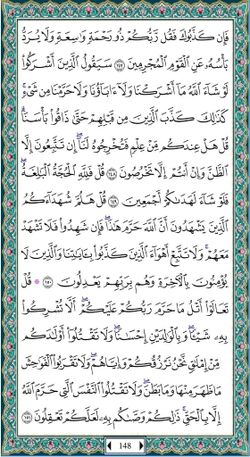 فَإِن كَذَّبُوكَ فَقُل رَّبُّكُمْ ذُو رَحْمَةٍ وَاسِعَةٍ وَلَا يُرَدُّ
بَأْسُهُۥ عَنِ ٱلْقَوْمِ ٱلْمُجْرِمِينَ ١٤٧ سَيَقُولُ ٱلَّذِينَ أَشْرَكُوا۟
لَوْ شَآءَ ٱللَّهُ مَآ أَشْرَكْنَا وَلَآ ءَابَآؤُنَا وَلَا حَرَّمْنَا مِن شَىْءٍ
كَذَٰلِكَ كَذَّبَ ٱلَّذِينَ مِن قَبْلِهِمْ حَتَّىٰ ذَاقُوا۟ بَأْسَنَا
قُلْ هَلْ عِندَكُم مِّنْ عِلْمٍ فَتُخْرِجُوهُ لَنَآ إِن تَتَّبِعُونَ إِلَّا
ٱلظَّنَّ وَإِنْ أَنتُمْ إِلَّا تَخْرُصُونَ ١٤٨ قُلْ فَلِلَّهِ ٱلْحُجَّةُ ٱلْبَٰلِغَةُ
فَلَوْ شَآءَ لَهَدَىٰكُمْ أَجْمَعِينَ ١٤٩ قُلْ هَلُمَّ شُهَدَآءَكُمُ
ٱلَّذِينَ يَشْهَدُونَ أَنَّ ٱللَّهَ حَرَّمَ هَٰذَا فَإِن شَهِدُوا۟ فَلَا تَشْهَدْ
مَعَهُمْ وَلَا تَتَّبِعْ أَهْوَآءَ ٱلَّذِينَ كَذَّبُوا۟ بِـَٔايَٰتِنَا وَٱلَّذِينَ لَا
يُؤْمِنُونَ بِٱلْـَٔاخِرَةِ وَهُم بِرَبِّهِمْ يَعْدِلُونَ ١٥٠ قُلْ
تَعَالَوْا۟ أَتْلُ مَا حَرَّمَ رَبُّكُمْ عَلَيْكُمْ أَلَّا تُشْرِكُوا۟
بِهِۦ شَيْـًٔا وَبِٱلْوَٰلِدَيْنِ إِحْسَٰنًا وَلَا تَقْتُلُوٓا۟ أَوْلَٰدَكُم
مِّنْ إِمْلَٰقٍ نَّحْنُ نَرْزُقُكُمْ وَإِيَّاهُمْ وَلَا تَقْرَبُوا۟ ٱلْفَوَٰحِشَ
مَا ظَهَرَ مِنْهَا وَمَا بَطَنَ وَلَا تَقْتُلُوا۟ ٱلنَّفْسَ ٱلَّتِى حَرَّمَ ٱللَّهُ
إِلَّا بِٱلْحَقِّ ذَٰلِكُمْ وَصَّىٰكُم بِهِۦ لَعَلَّكُمْ تَعْقِلُونَ ١٥١
148